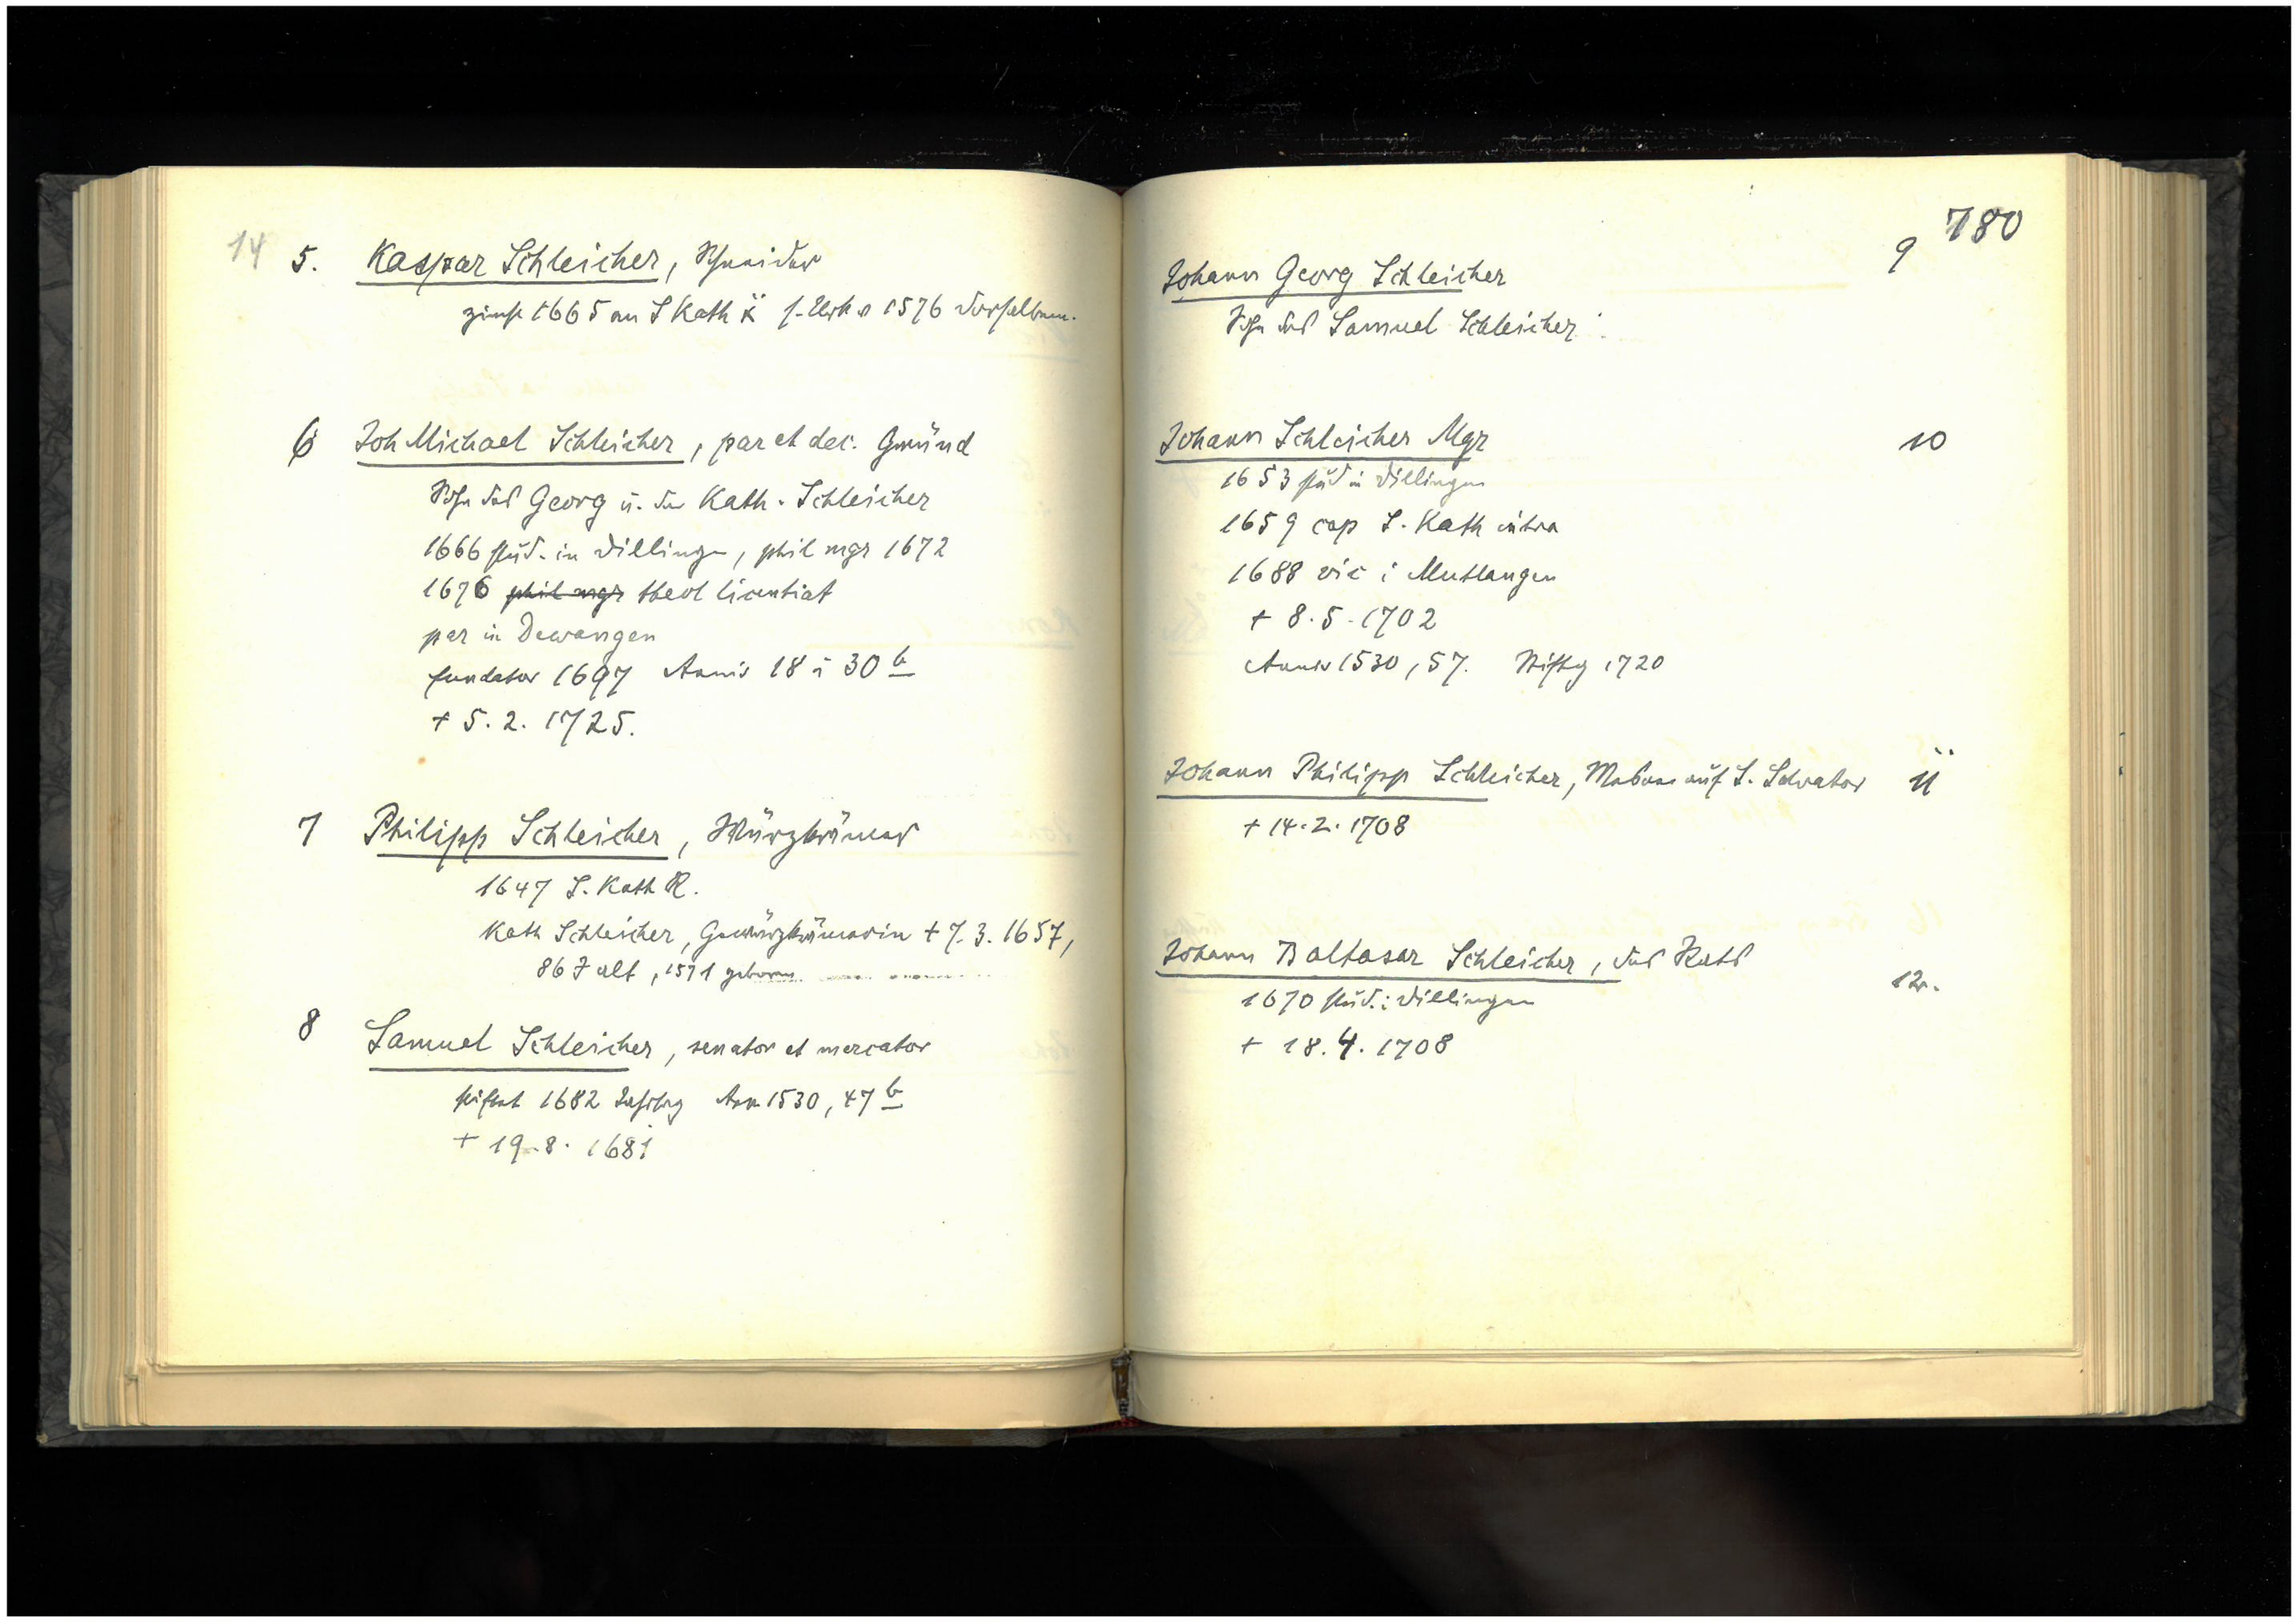 14 5. Kaspar Schleicher, Schneider
zinst 1665 an S Kath f. Urk v 1576 derselben.
6 Joh Michael Schleicher, par et dec. Gmünd
Sohn des Georg u. der Kath. Schleicher
1666 stud. in Dillingen, phil mgr 1672
1676 phil mgr theol licentiat
par in Dewangen
fundator 1697 Anniv 18 i 30 b
+ 5. 2. 1725.
7 Philipp Schleicher, Würzkrämer
1647 S. Kath R.
Kath Schleicher, Gewürzkrämerin + 7. 3. 1657,
86 J alt, 1571 geboren
8 Samuel Schleicher, senator et mercator
stiftet 1682 Jahrtag Ann 1530, 47 b
+ 19. 8. 1681
780
Johann Georg Schleicher 9
Sohn des Samuel Schleicher
Johann Schleicher Mgr 10
1653 stud in Dillingen
1659 cap S. Kath intra
1688 vic i Mutlangen
+ 8. 5. 1702
Anniv 1530, 57. Stiftg 1720
Johann Philipp Schleicher, auf S. Salvator 11
+ 14. 2. 1708
Johann Baltasar Schleicher, des Rats
12.
1670 stud. i Dillingen
+ 18. 4. 1708